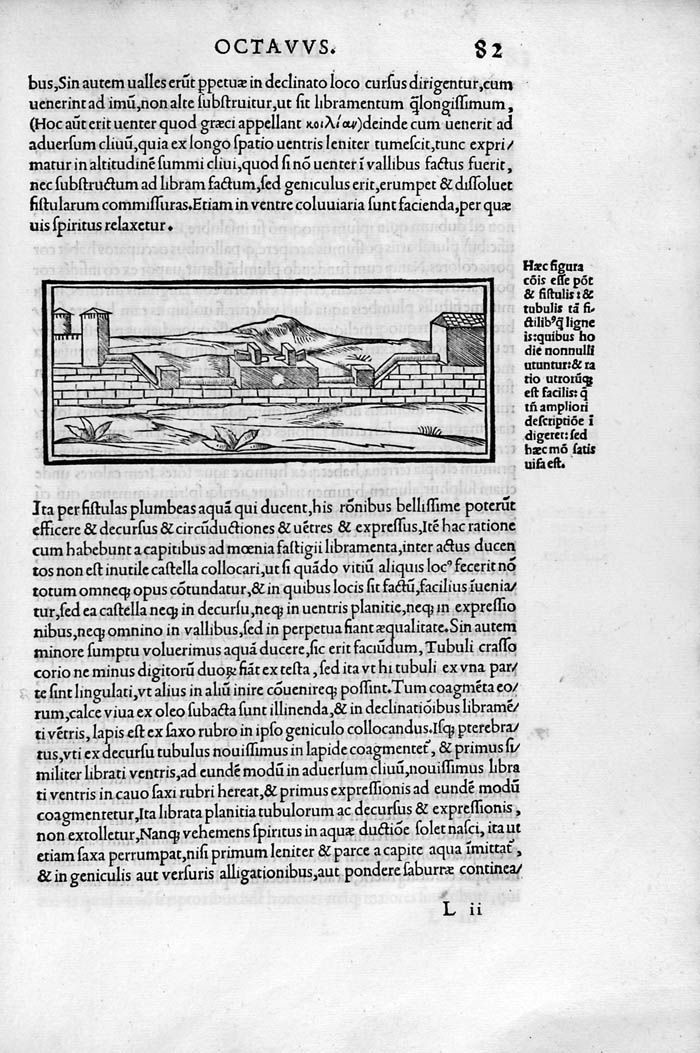 OCTAVVS.
82
bus, Sin autem ualles erũt ꝑpetuæ in declinato loco cursus dirigentur, cum
uenerint ad imũ, non alte substruitur, ut sit libramentum q̃longissimum,
(Hoc aũt erit uenter quod græci appellant κοιλίαν) deinde cum uenerit ad
aduersum cliuũ, quia ex longo spatio uentris leniter tumescit, tunc expri/
matur in altitudinẽ summi cliui, quod si nõ uenter ĩ vallibus factus fuerit,
nec substructum ad libram factum, sed geniculus erit, erumpet & dissoluet
fistularum commissuras. Etiam in ventre coluuiaria sunt facienda, per quæ
uis spiritus relaxetur.
Hæc figura
cõis esse põt
& fistulis: &
tubulis tã fi.
ctilibꝰ q̃ ligne
is: quibus ho
die nonnulli
utuntur: & ra
tio utrorũq;
est facilis: q̃
tñ ampliori
descriptiõe ĩ
digeret: sed
hæc mõ satis
uisa est.
Ita per fistulas plumbeas aquã qui ducent, his rõnibus bellissime poterũt
efficere & decursus & circũductiones & uẽtres & expressus, Itẽ hac ratione
cum habebunt a capitibus ad mœnia fastigii libramenta, inter actus ducen
tos non est inutile castella collocari, ut si quãdo vitiũ aliquis locꝰ fecerit nõ
totum omneq; opus cõtundatur, & in quibus locis sit factũ, facilius ĩuenia/
tur, sed ea castella neq; in decursu, neq; in uentris planitie, neq; in expressio
nibus, neq; omnino in vallibus, sed in perpetua fiant æqualitate. Sin autem
minore sumptu voluerimus aquã ducere, sic erit faciũdum, Tubuli crasso
corio ne minus digitorũ duoꝝ fiãt ex testa, sed ita vt hi tubuli ex vna par/
te sint lingulati, vt alius in aliũ inire cõuenireq; possint. Tum coagmẽta eo/
rum, calce viua ex oleo subacta sunt illinenda, & in declinatiõibus libramẽ/
ti vẽtris, lapis est ex saxo rubro in ipso geniculo collocandus. Isq; pterebra/
tus, vti ex decursu tubulus nouissimus in lapide coagmentet᷑, & primus si/
militer librati ventris, ad eundẽ modũ in aduersum cliuũ, nouissimus libra
ti ventris in cauo saxi rubri hereat, & primus expressionis ad eundẽ modũ
coagmentetur, Ita librata planitia tubulorum ac decursus & expressionis,
non extolletur, Nanq; vehemens spiritus in aquæ ductiõe solet nasci, ita ut
etiam saxa perrumpat, nisi primum leniter & parce a capite aqua ĩmittat᷑,
& in geniculis aut versuris alligationibus, aut pondere saburræ continea/
L ii